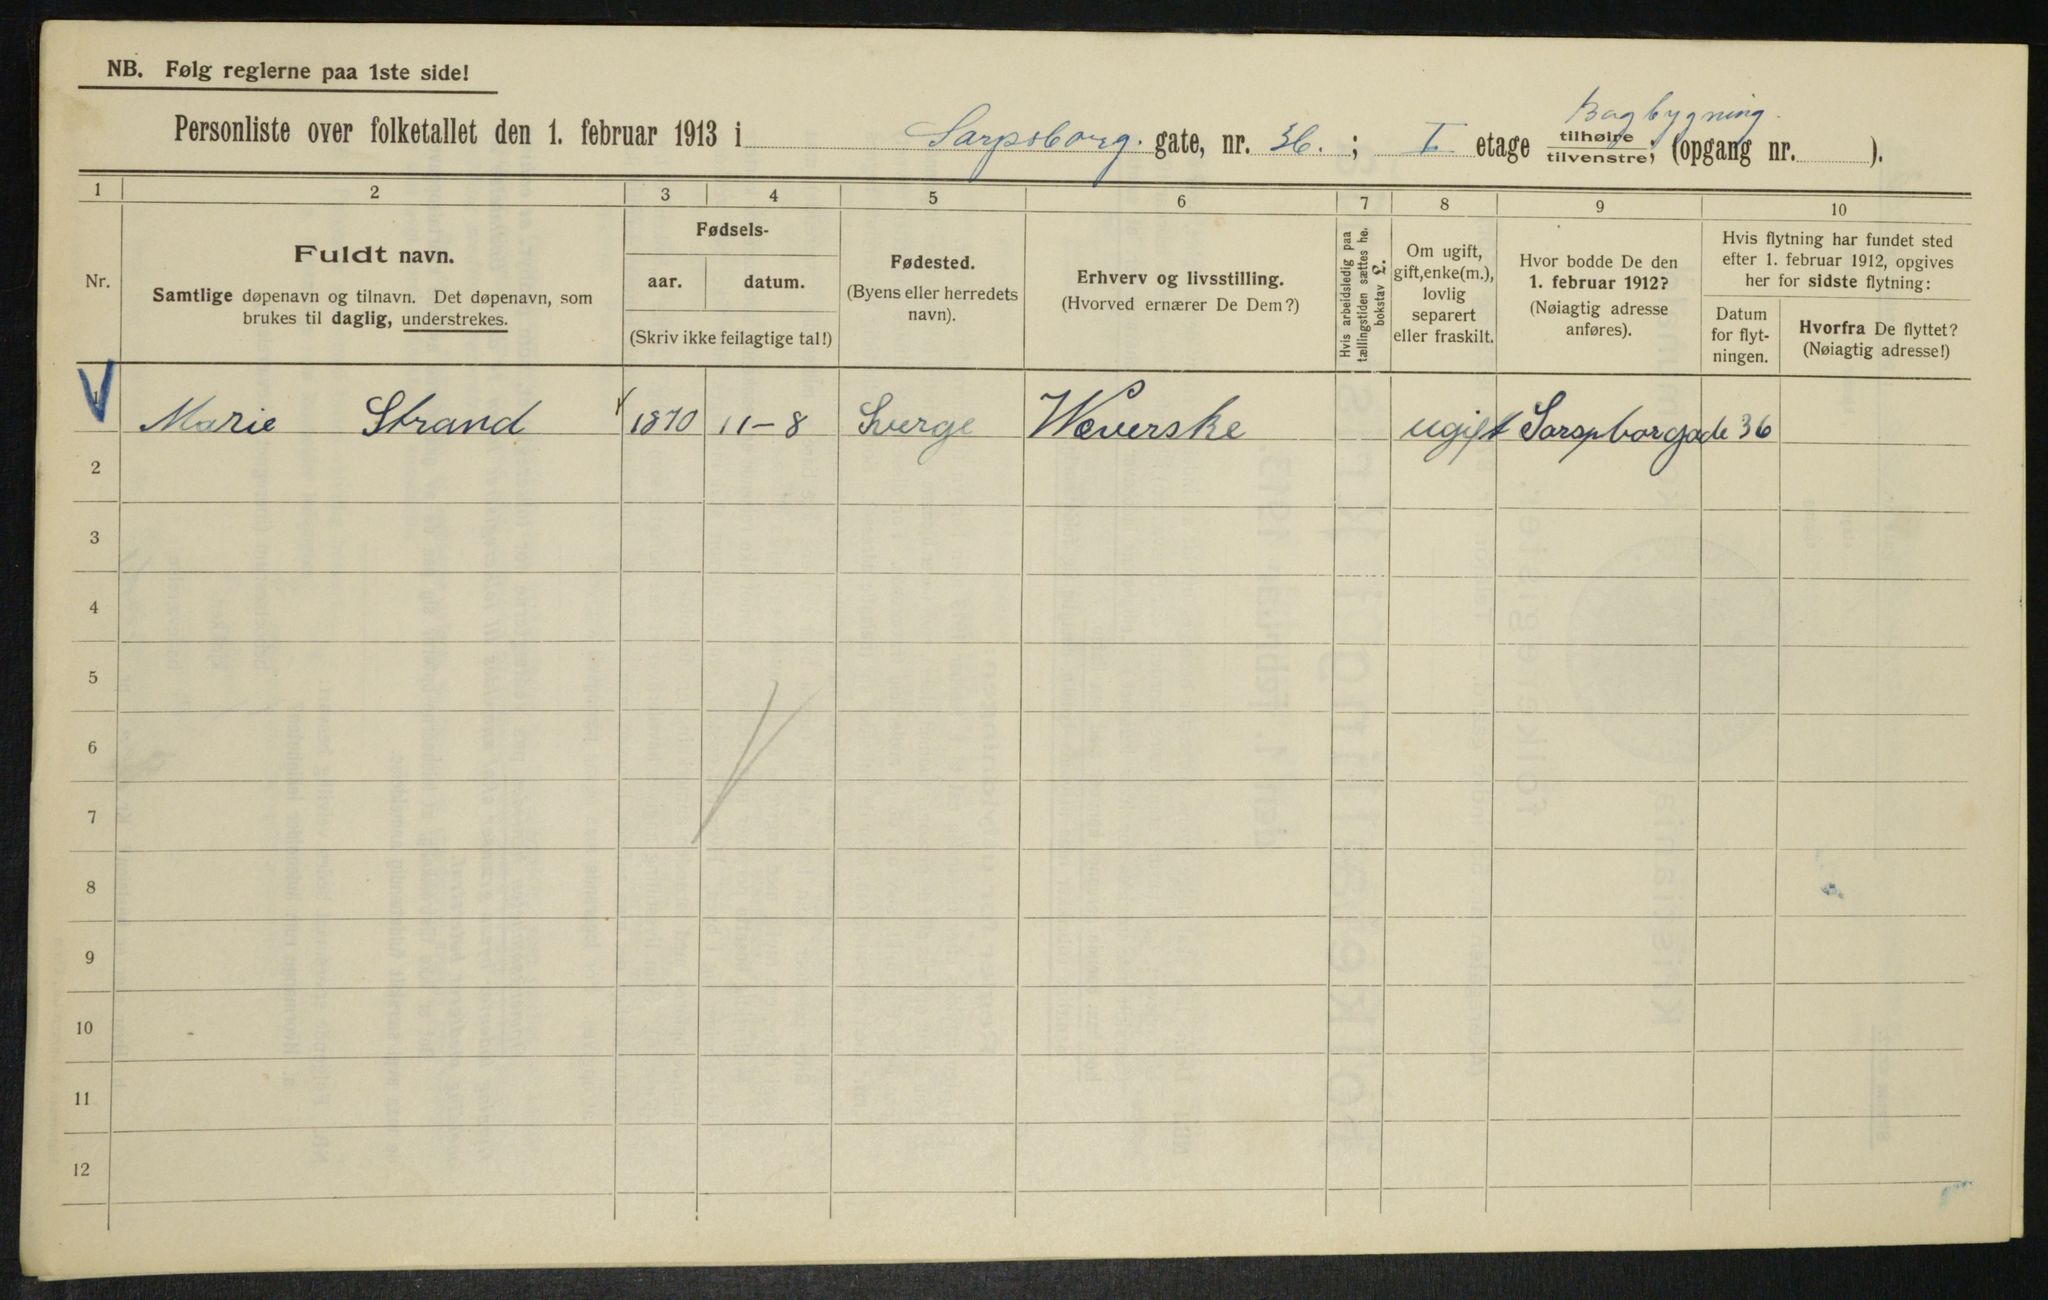 NB. Følg reglerne paa 1ste side!
Bagbygning.
Personliste over folketallet den 1. februar 1913 i Sarpsborg. gate, nr. 36. ; I etage tilhøire tilvenstre, (opgang nr. ).
1 2 3 4 5 6 7 8 9 10
Nr.
Fuldt navn.
Samtlige døpenavn og tilnavn. Det døpenavn, som
brukes til daglig, understrekes.
Fødsels-
aar. datum.
(Skriv ikke feilagtige tal!)
Fødested.
(Byens eller herredets
navn).
Erhverv og livsstilling.
(Hvorved ernærer De Dem?)
Hvis arbeidsledig paa
tællingstiden sættes he.
bokstav L.
Om ugift,
gift, enke(m.),
lovlig
separert
eller fraskilt.
Hvor bodde De den
1. februar 1912?
(Nøiagtig adresse
anføres).
Hvis flytning har fundet sted
efter 1. februar 1912, opgives
her for sidste flytning:
Datum
for flyt-
ningen.
Hvorfra De flyttet?
(Nøiagtig adresse!)
1 Marie Strand 1870 11-8 Sverge Wæverske ugift Sarspborgade 36
2
3
4
5
6
7
8
9
10
11
12